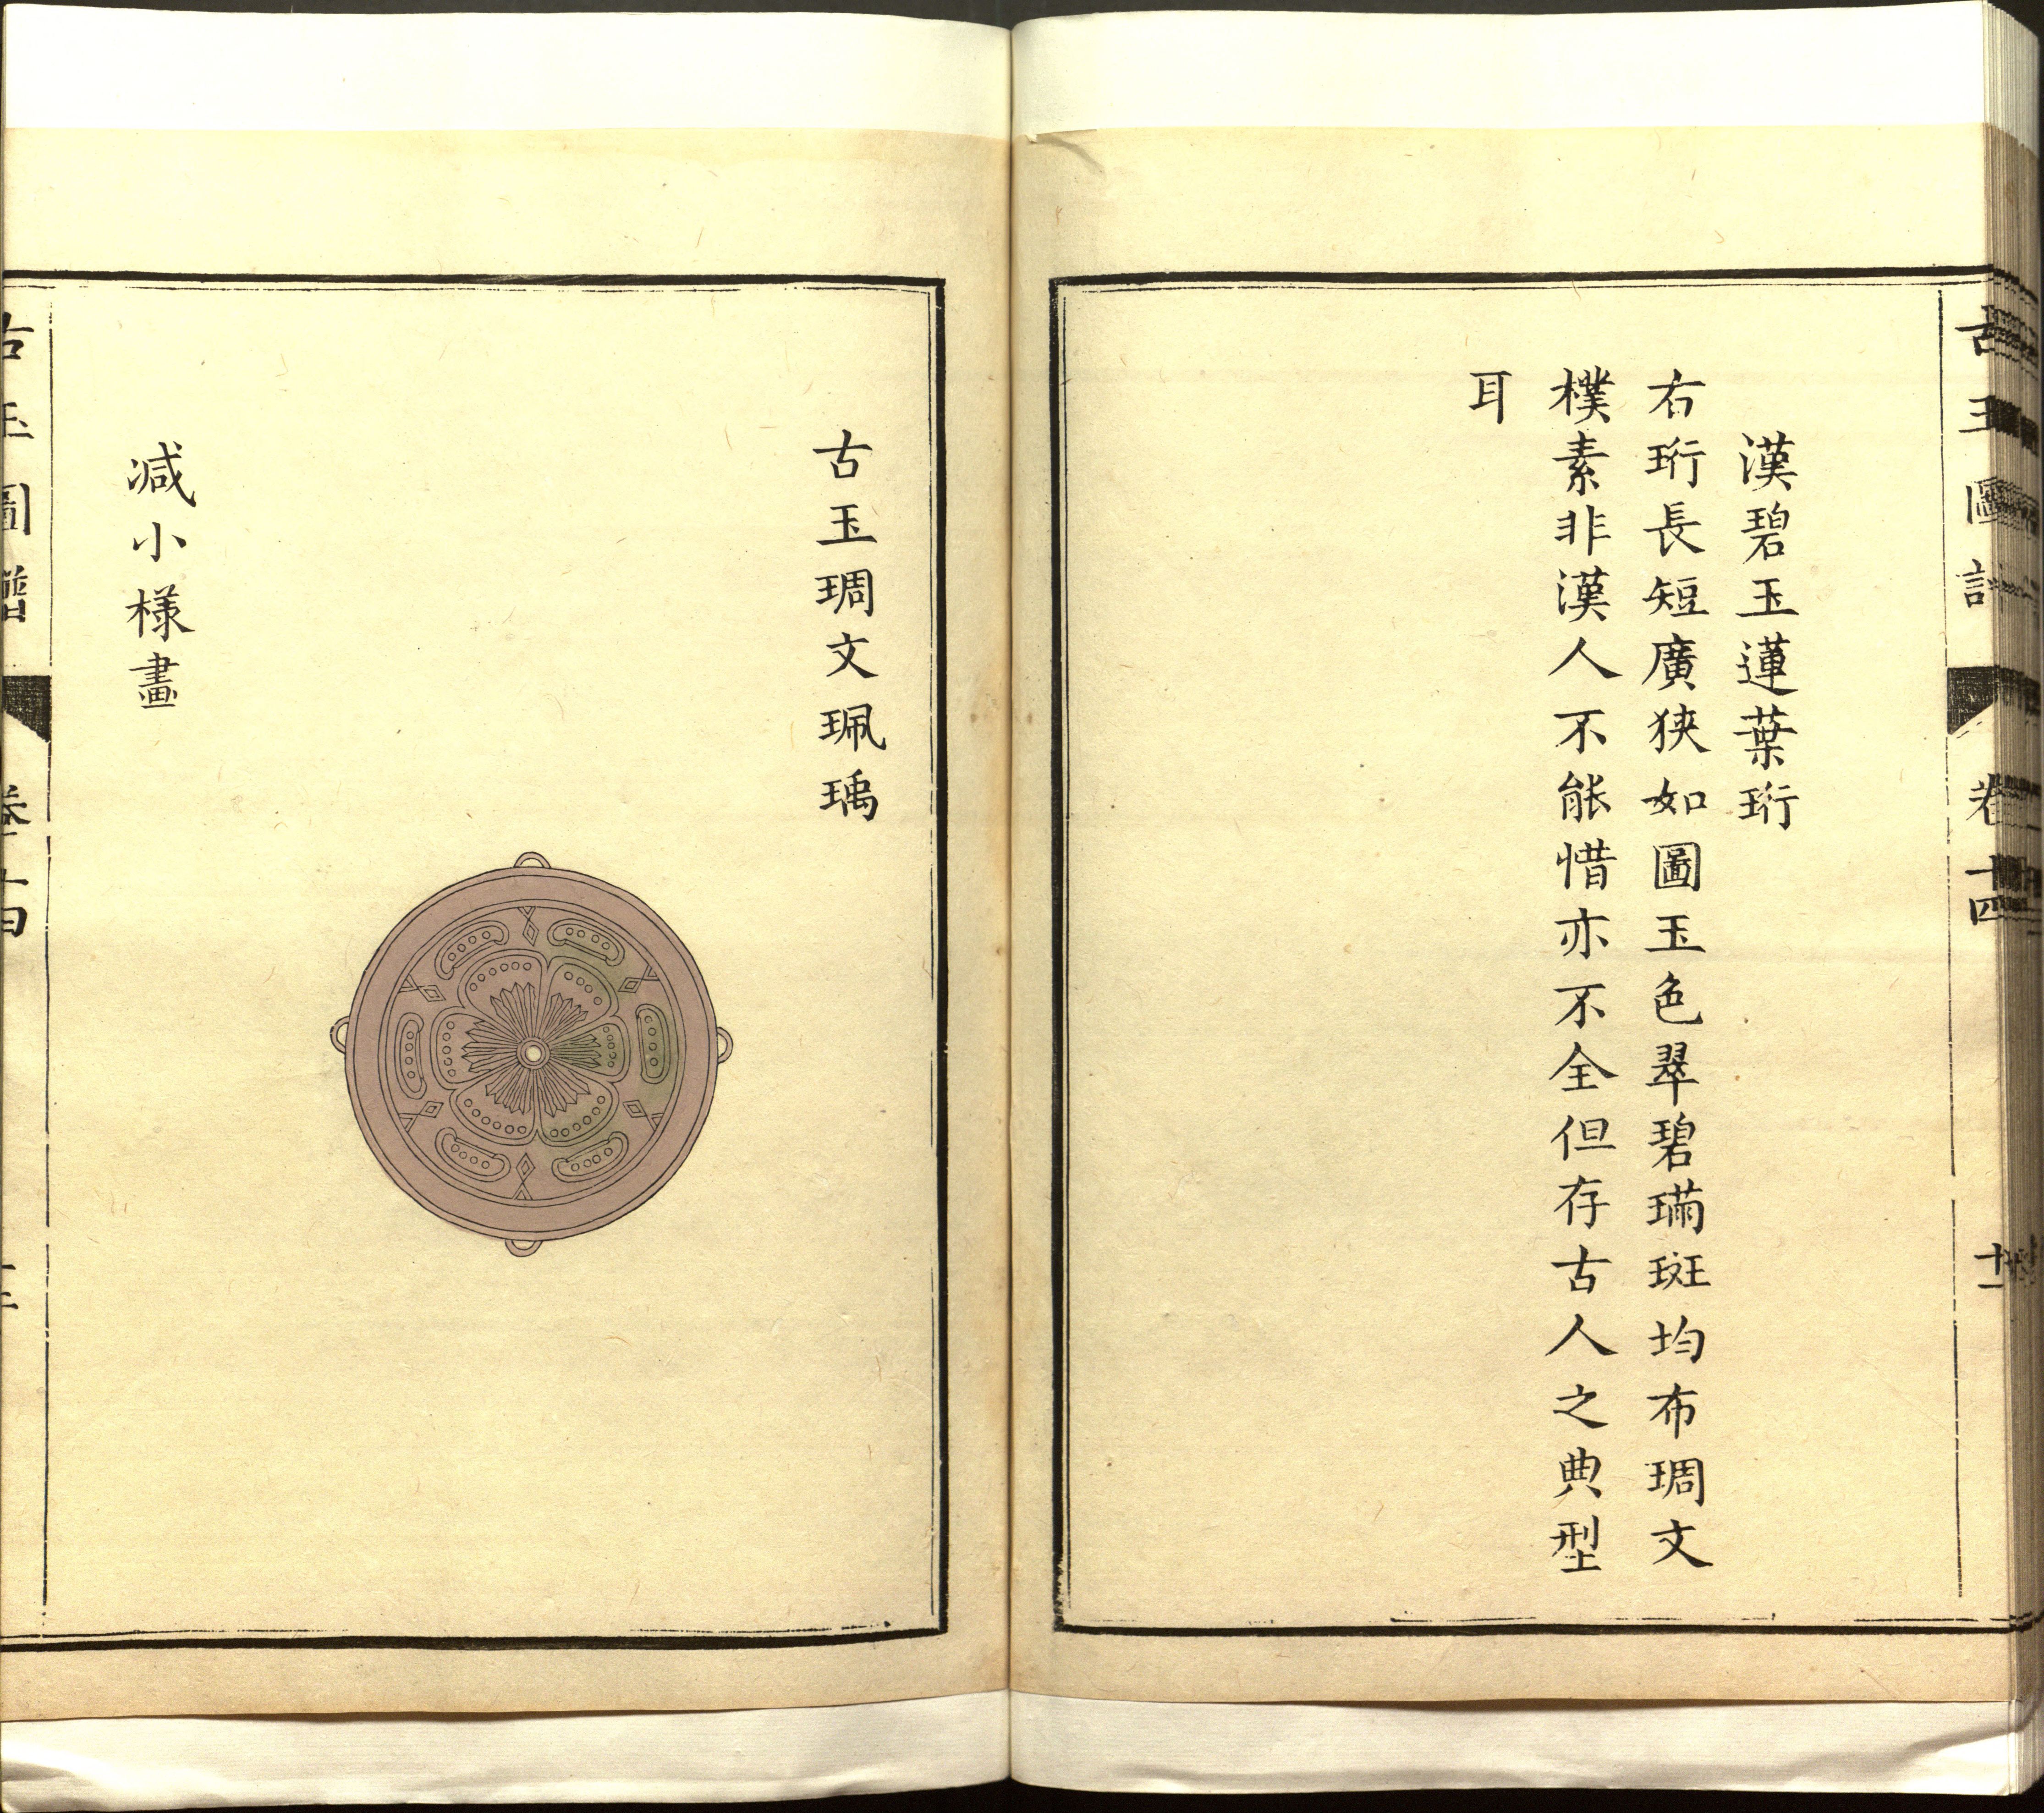 漢碧玉蓮葉珩
右珩長短廣狹如圖玉色翠碧璊斑均布琱文
樸素非漢人不能惜亦不全但存古人之典型
耳
古玉琱文珮瑀
減小樣畫
古玉圖譜
卷十四
十一
古玉圖譜